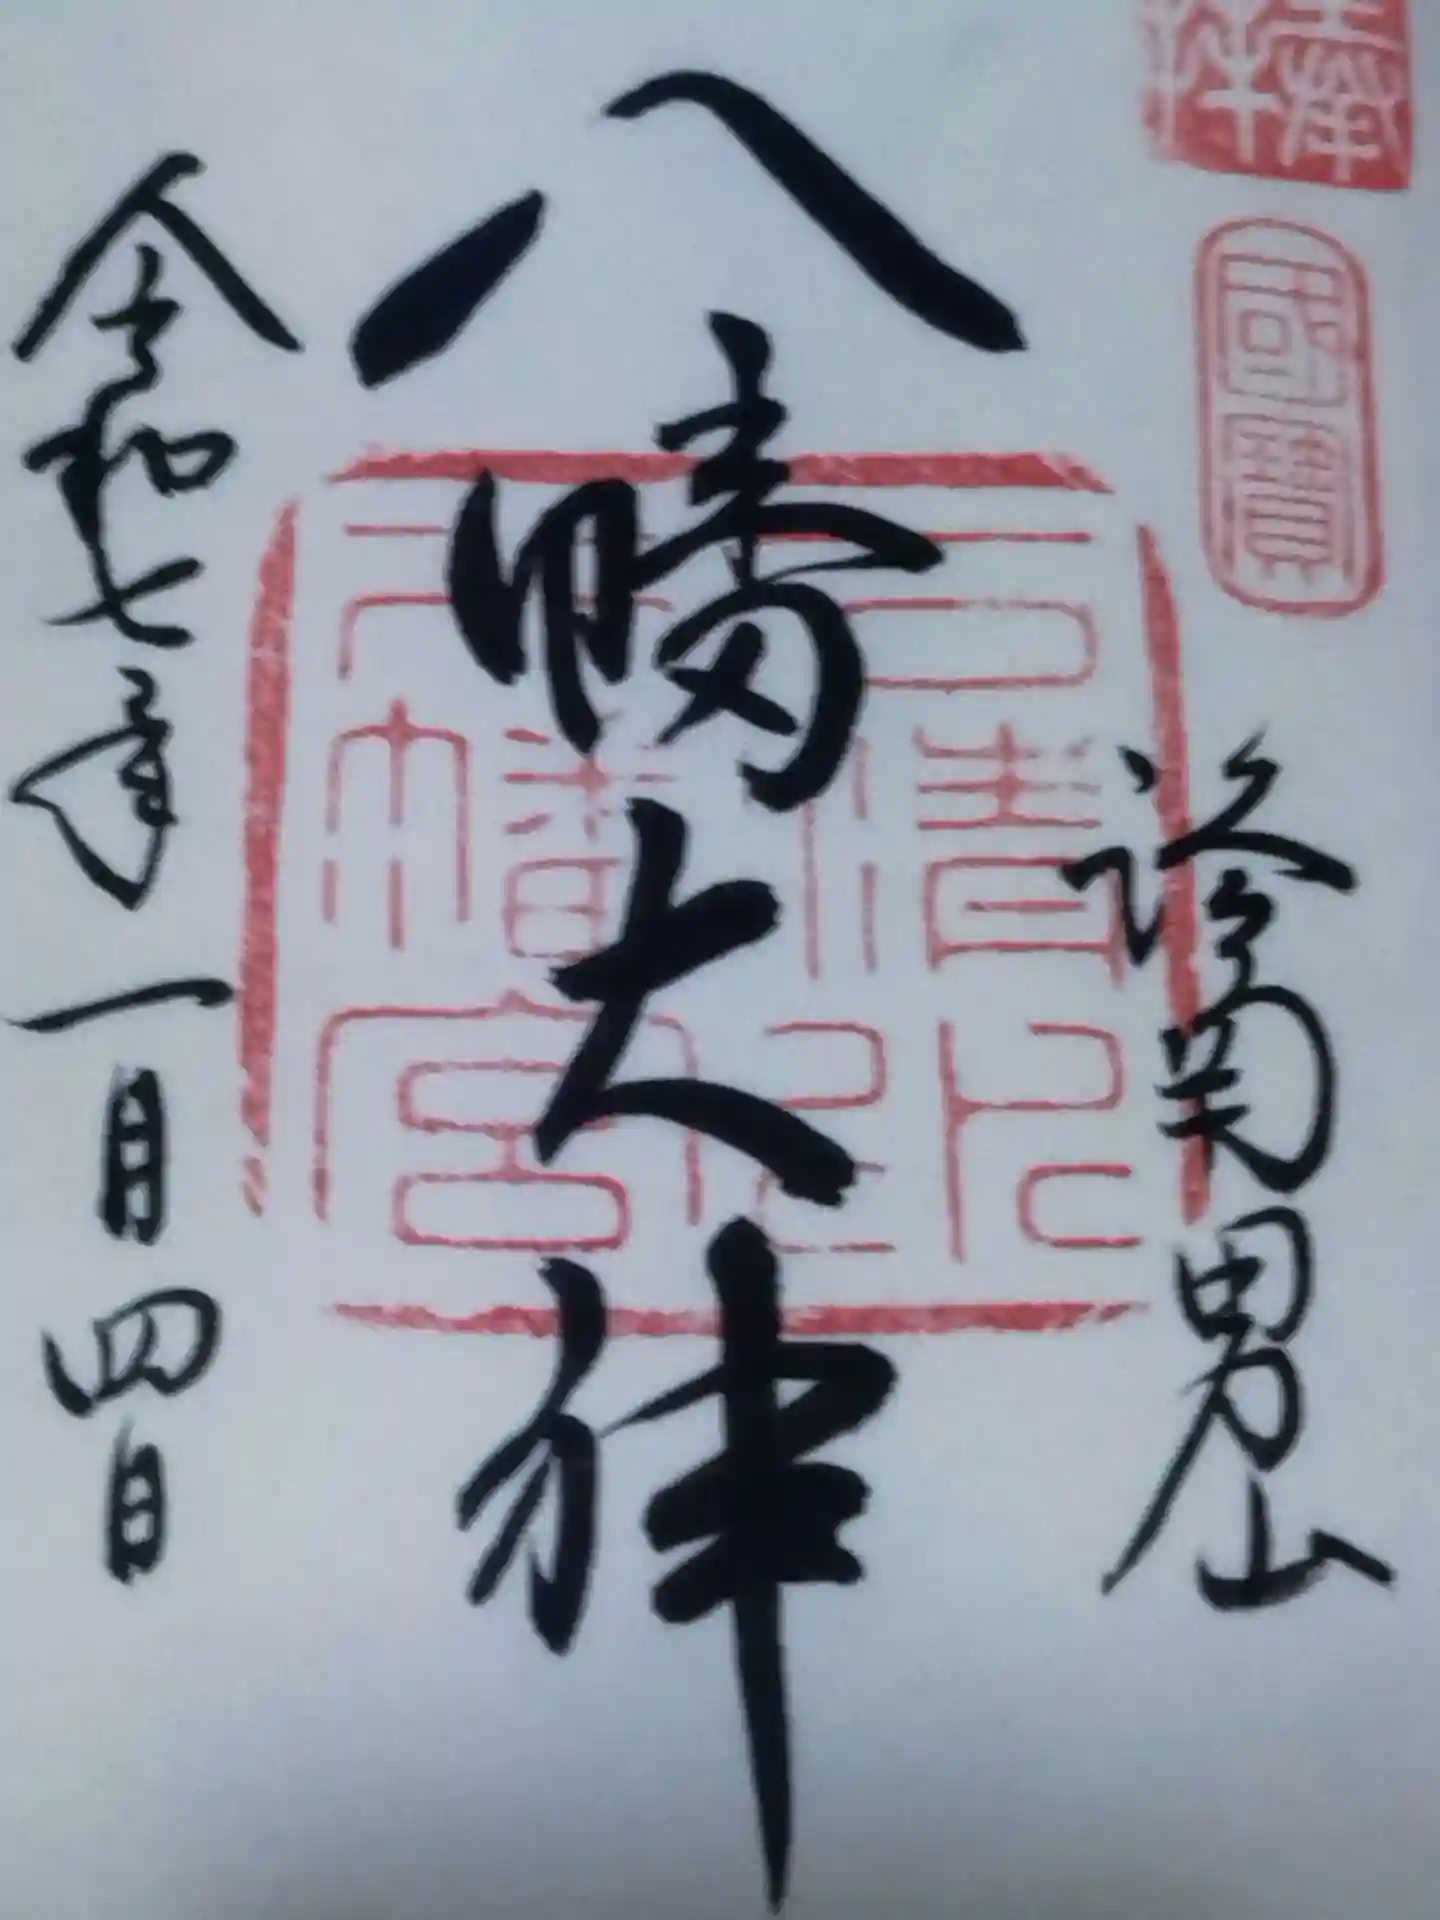 奉拝
國寳
詣南男山
八幡大神
石清水
八幡宮
令和七年一月四日